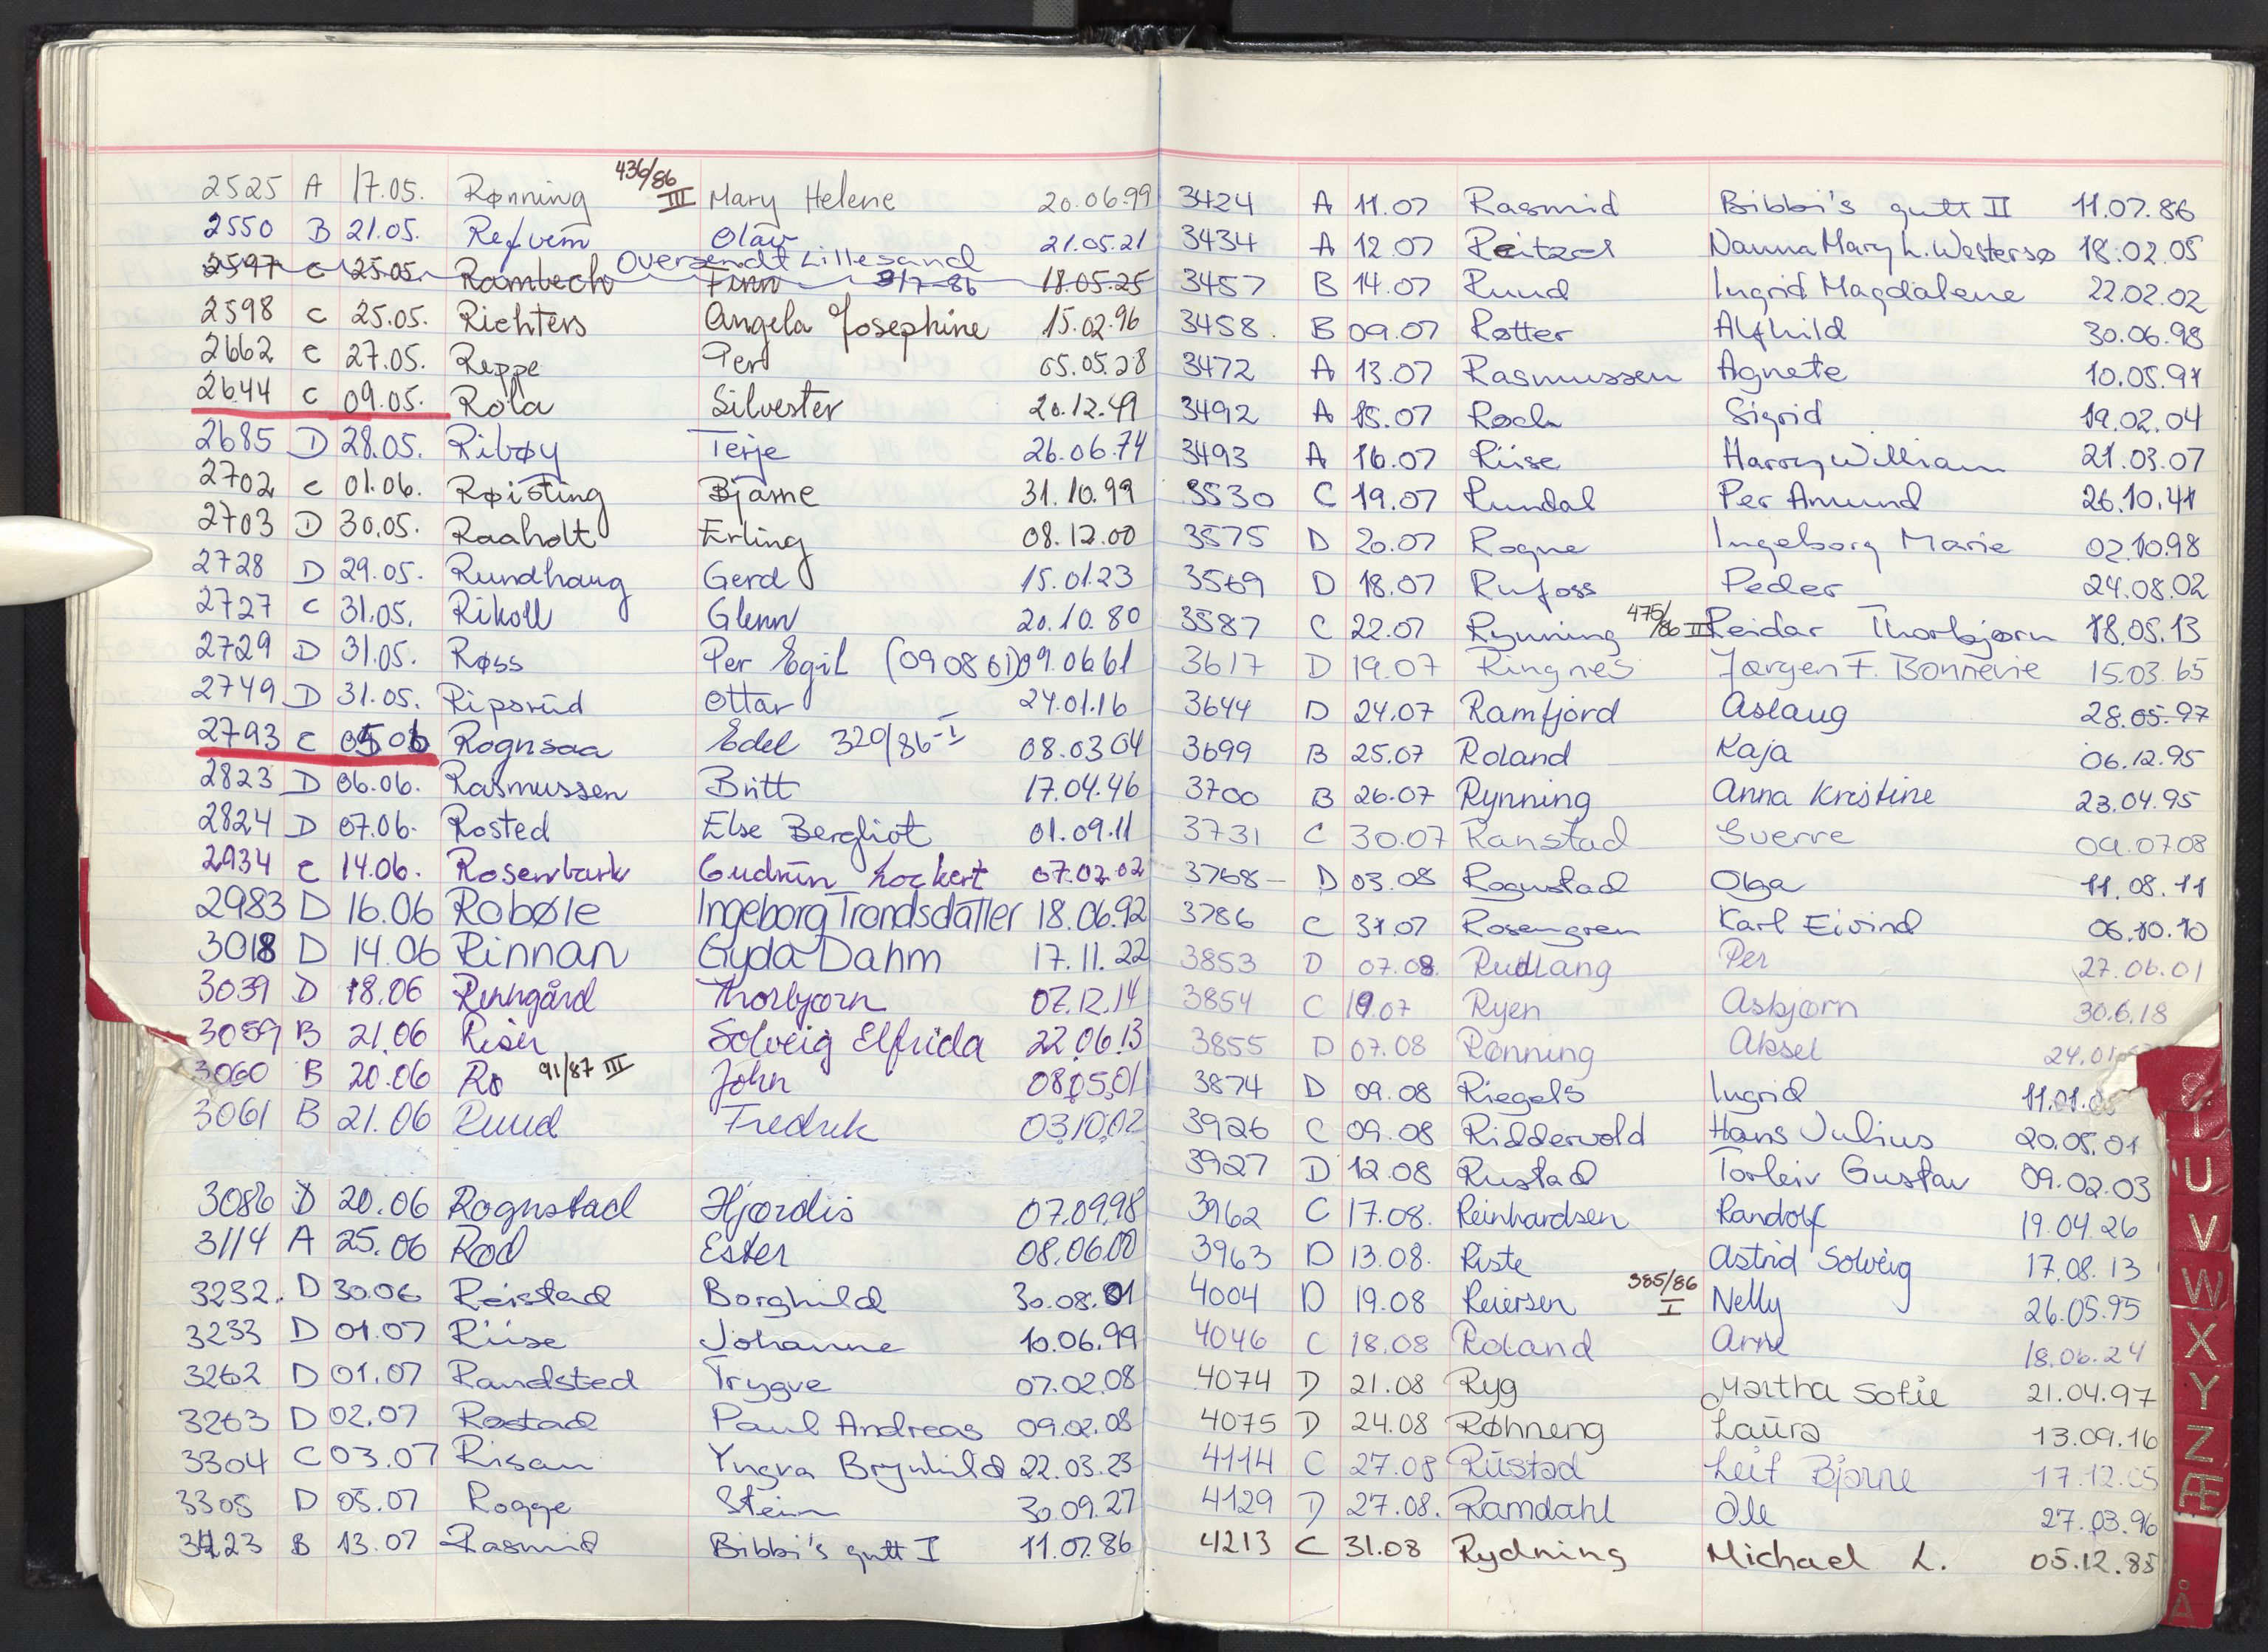 2525 A 17.05. Rønning 436/86 III Mary Helene 20.06.99
2550 B 21.05. Refvem Olav 21.05.21
Oversendt Lillesand
2597 C 25.05. Rambech Finn 3/7-86 18.05.25
2598 C 25.05. Richters Angela Josephine 15.02.96
2662 C 27.05. Reppe Per 05.05.28
2644 C 09.05. Rola Silvester 20.12.49
2685 D 28.05. Ribøy Terje 26.06.74
2702 C 01.06. Røisting Bjarne 31.10.99
2703 D 30.05. Raaholt Erling 08.12.00
2728 D 29.05. Rundhaug Gerd 15.01.23
2727 C 31.05. Rikoll Glenn 20.10.80
2729 D 31.05. Røss Per Egil (090861) 09.06 61
2749 D 31.05. Ripsrud Ottar 24.01.16
2793 C 05 06 Rognsaa Edel 320/86-I 08.03 04
2823 D 06.06. Rasmussen Britt 17.04.46
2824 D 07.06. Rosted Else Bergliot 01.09.11
2934 C 14.06. Rosenbark Gudrun Lockert 07.02.02
2983 D 16.06 Robøle Ingeborg Trondsdatter 18.06.92
3018 D 14.06 Rinnan Gyda Dahm 17.11.22
3039 D 18.06 Renngård Thorbjørn 07.12.14
3059 B 21.06 Riser Solveig Elfrida 22.06.13
3060 B 20.06 Rø 91/87 III John 08.05.01
3061 B 21.06 Ruud Fredrik 03.10.02
3086 D 20.06 Rognstad Hjørdis 07.09.98
3114 A 25.06 Rød Ester 08.06.00
3232. D 30.06 Reistad Borghild 30.08.01
3233 D 01.07 Riise Johanne 10.06.99
3262 D 01.07 Randsted Trygve 07.02.08
3263 D 02.07 Røstad Paul Andreas 09.02.08
3304 C 03.07 Risan Yngva Brynhild 22.03.23
3305 D 05.07 Rogge Stein 30.09.27
3423 B 13.07 Rasmid Bibbi's gutt I 11.07.86
3424 A 11.07 Rasmid Bibbi's gutt II 11.07.86
3434 A 12.07 Reitzel Nanna Mary L. Westersø 18.02.05
3457 B 14.07 Ruud Ingrid Magdalene 22.02.02
3458. B 09.07 Røtter Alfhild 30.06.98
3472 A 13.07 Rasmussen Agnete 10.05.91
3492 A 15.07 Røch Sigrid 19.02.04
3493 A 16.07 Riise Harry William 21.03.07
3530 C 19.07 Rundal Per Amund 26.10.41
3575 D 20.07 Rogne Ingeborg Marie 02.10.98
3569 D 18.07 Rufoss Peder 24.08.02
3587 C 22.07 Rynning 475/86 II Reidar Thorbjørn 18.05.13
3617 D 19.07 Ringnes Jørgen F. Bonnevie 15.03.65
3644 D 24.07 Ramfjord Aslaug 28.05.97
3699 B 25.07 Roland Kaja 06.12.95
3700 B 26.07 Rynning Anna Kristine 23.04.95
3731 C 30.07 Ranstad Sverre 09.07.08
3768- D 03.08 Rognstad Olga 11.08.11
3786 C 31.07 Rosengren Karl Eivind 06.10.10
3853 D 07.08. Rudlang Per 27.06.01
3854 C 19.07 Ryen Asbjørn 30.6.18
3855 D 07.08 Rønning Aksel 24.01
3874 D 09.08 Riegels Ingrid 11.01.
3926 C 09.08 Riddervold Hans Julius 20.05.01
3927 D 12.08 Rustad Torleiv Gustav 09.02.03
3962 C 17.08. Reinhardsen Randolf 19.04.26
3963 D 13.08. Riste Astrid Solveig 17.08.13
4004 D 19.08 Reiersen 385/86 I Nelly 26.05.95
4046 C 18.08 Roland Arne 18.06.24
4074 D 21.08 Ryg Martha Sofie 21.04.97
4075 D 24.08 Røhneng Laura 13.09.16
4114 C 27.08 Rustad Leif Bjarne 17.12.05
4129 D 27.08. Ramdahl Ole 27.03.96
4213 C 31.08 Rydning Michael L. 05.12.85
U
V
W
X
Y
Z
Æ
Å